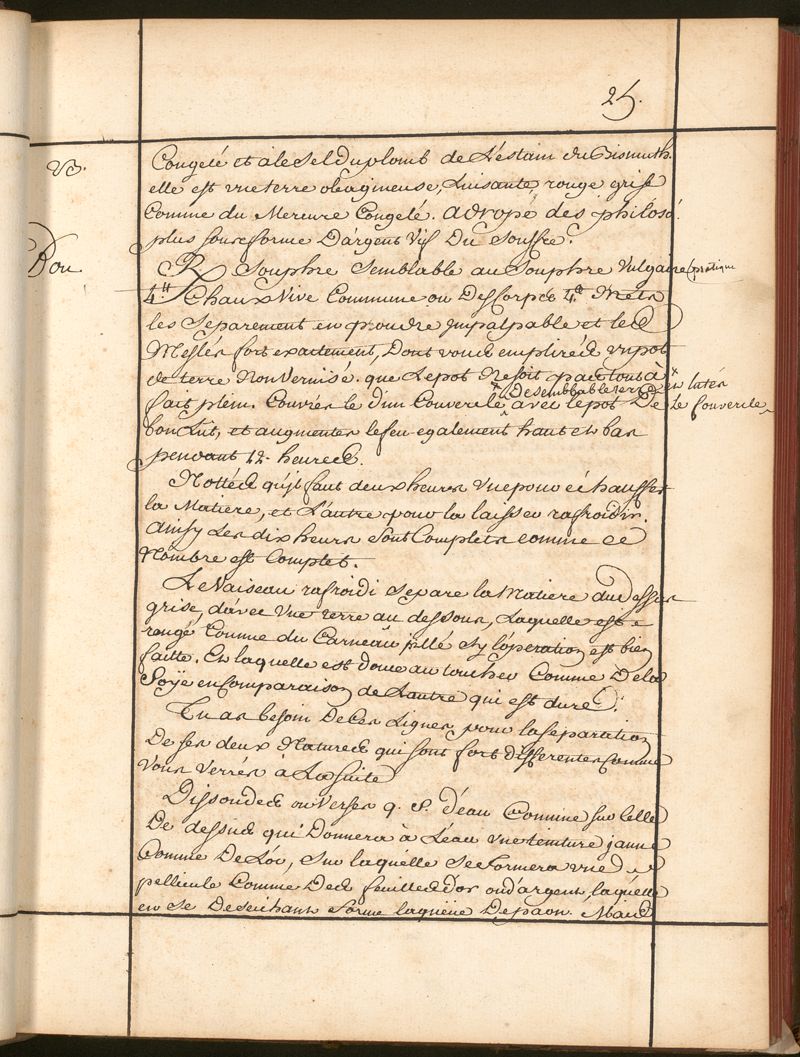 25.
Congelé et à le Sel du plomb de L'estain du Bismuth.
elle est une terre oleagineuse, Luisante, rouge grise
Comme du Mercure Congelé. adrope des philoso.
plus sous forme D'argent Vif Du Souffre.
Dou
℞ Souphre Semblable au Souphre Vulgaire pratique
4.℔ Chaux Vive Commune ou Des Corps 4.℔ Metes
les Separement en poudre impalpable et les
Meslés fort exactement, Dont vous emplirés un pot
de terre Non Vernisé. que Le pot Ne soit pas tout à
fait plein. Couvrés le d'un Couvercle avec le pot De
+ Desemblable terre + en lutés Le Couvercle
bon Lut, et augmentes le feu egalement haut et bas
pendant 12. heures.
Nottés qu'jl faut deux heures une pour échauffer
la Matiere, et L'autre pour la laisser rafroidir.
Ainsy Les dix heures sont Complets comme ce
Nombre est Complet.
Le Vaiseau rafroidi Separe la Matiere du dessus
grise, d'avec une terre au dessous, Laquelle est
rouge Comme du Carneau pillé sy l'operation est bien
faitte. Et laquelle est douce au toucher Comme De la
Soÿe en Comparaison de L'autre qui est dure.
Tu as besoin De Ces Lignes pour la Separation
De ses deux Natures qui sont fort Differentes Comme
Vous Verrés à La Suite
Dissoudes ou Verses q. S. d'eau Commune sur Celle
De dessus qui Donnera à L'eau une teinture jaune
Comme De L'or, Sur laquelle Se formera une
pellicule Comme Des feuilles d'or ou d'argent, laquelle
en se Desseichant forme la queüe De paon. Mais